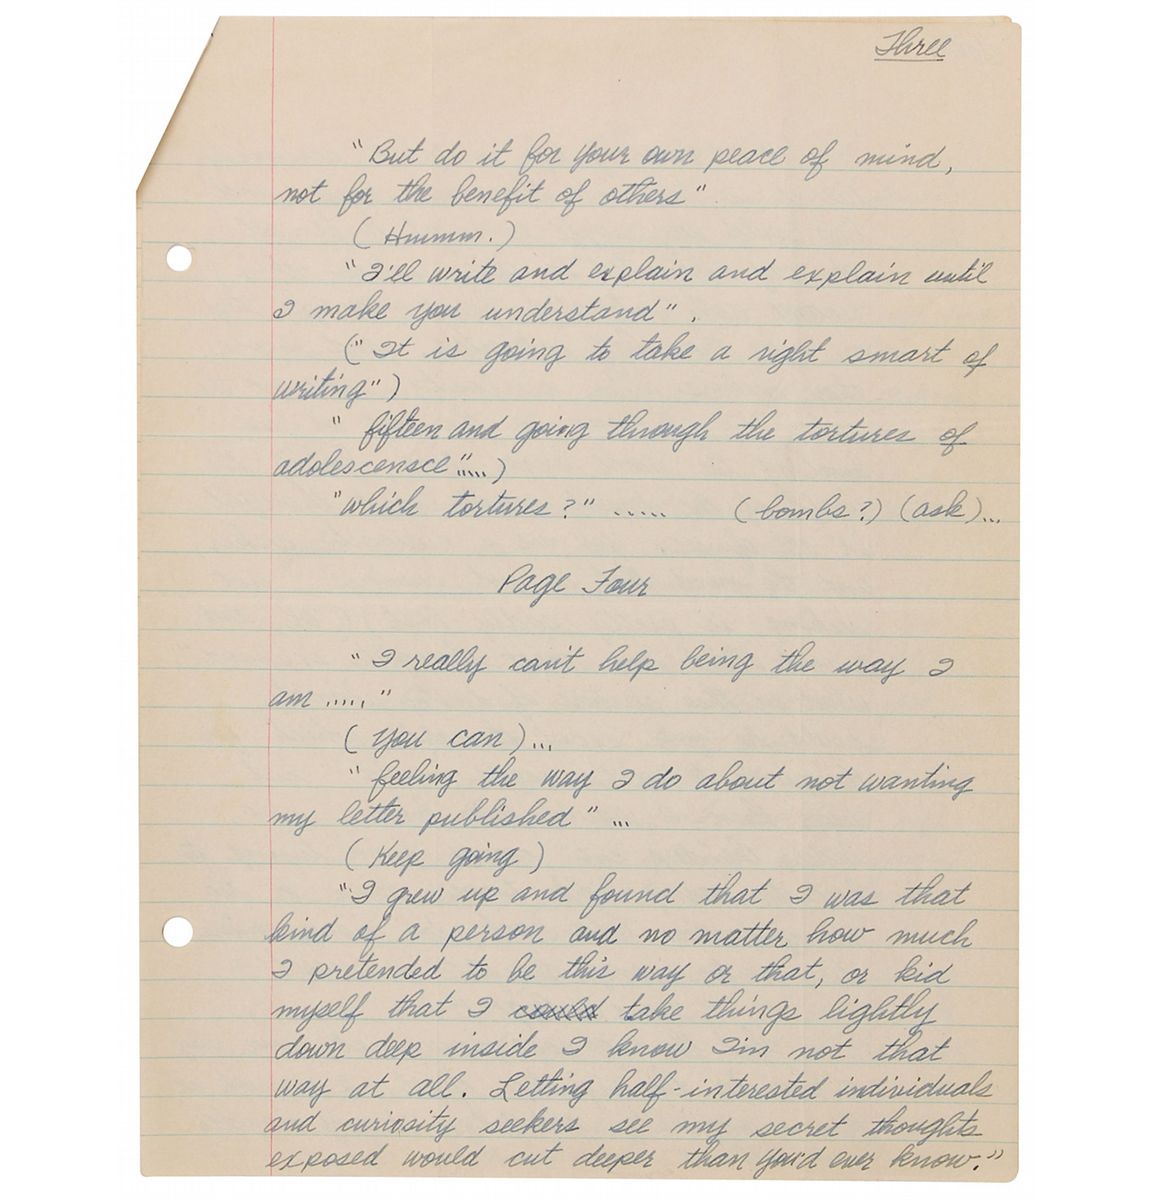 Three
"But do it for your own peace of mind,
not for the benefit of others"
(Hmmm.)
"I'll write and explain and explain until
I make you understand".
("It is going to take a right smart of
writing")
"fifteen and going through the tortures of
adolescensce".....)
"which tortures?" ..... (bombs?) (ask)...
Page Four
"I really can't help being the way I
am ....."
(You can)...
"feeling the way I do about not wanting
my letter published" ...
(Keep going)
"I grew up and found that I was that
kind of a person and no matter how much
I pretended to be this way or that, or kid
myself that I could take things lightly
down deep inside I know I'm not that
way at all. Letting half-interested individuals
and curiosity seekers see my secret thoughts
exposed would cut deeper than you'd ever know."